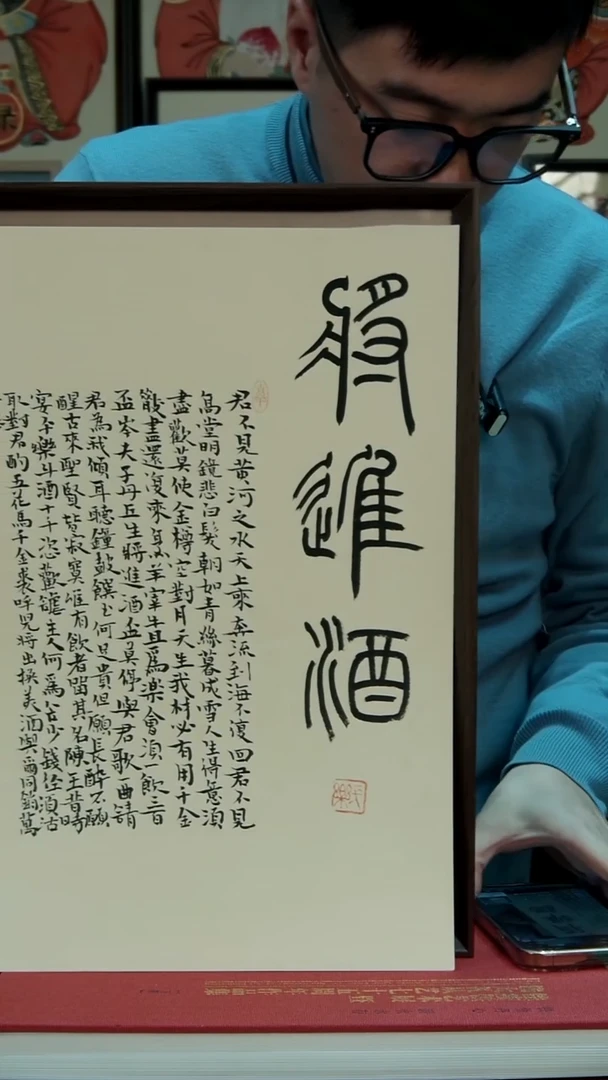 將進酒
君不見黃河之水天上來奔流到海不復回君不見
高堂明鏡悲白髮朝如青絲暮成雪人生得意須
盡歡莫使金樽空對月天生我材必有用千金
散盡還復來烹羊宰牛且爲樂會須一飲三百
盃岑夫子丹丘生將進酒盃莫停與君歌一曲請
君為我傾耳聽鐘鼓饌玉何足貴但願長醉不願
醒古來聖賢皆寂寞惟有飲者留其名陳王昔時
宴平樂斗酒十千恣歡謔主人何爲言少錢徑須沽
取對君酌五花馬千金裘呼兒將出換美酒與爾同銷萬